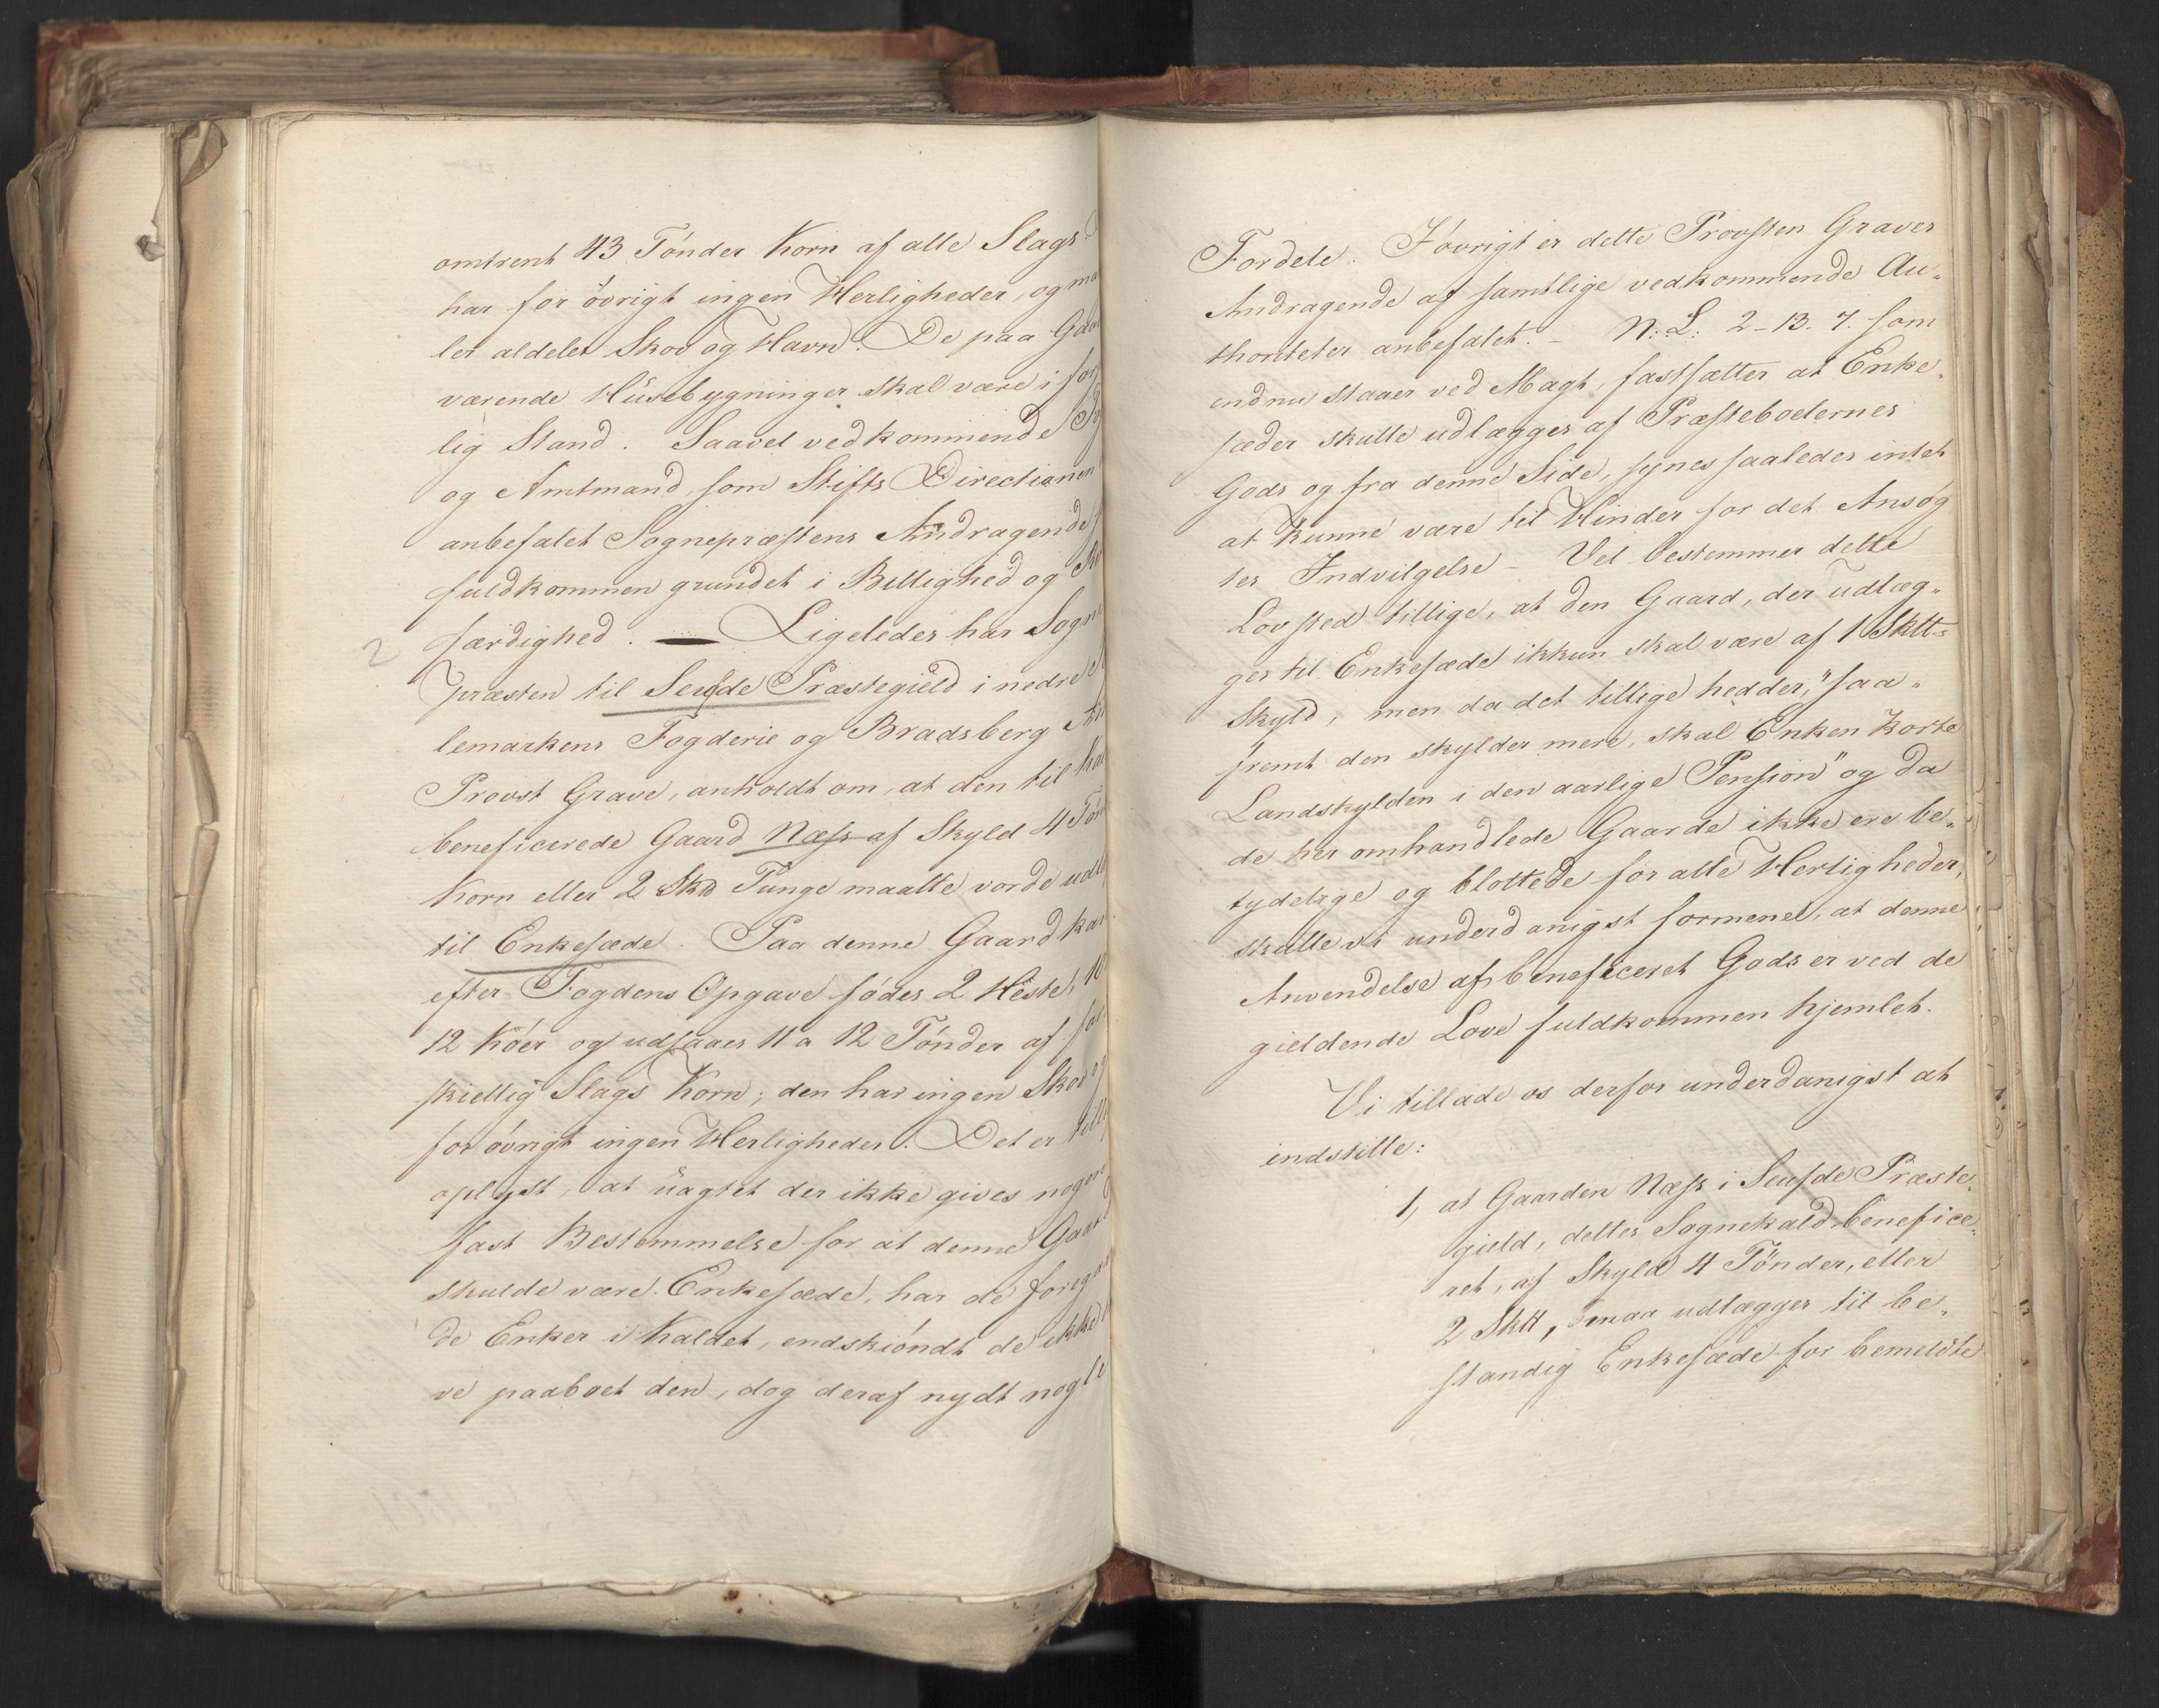 omtrent 43 Tónder Korn af alle Slags
har for óvrigt ingen Herligheder, og
ler aldeles Skov og Havn. De paa
værende Húsebygninger skal være i
lig Stand. Saavel vedkommende
og Amtmand, som Stifts Directionen
anbefalet Sognepræstens Andragende
fuldkommen grundet i Billighed og
færdighed. — Ligeledes har
2
præsten til Seufde Præstegield i nedre
lemarkens Fogderie og Bradsberg
Provst Grave, anholdt om, at den til
beneficerede Gaard Næss af Skyld 4
Korn eller 2 Skd Tunge maatte vorde
til Enkesæde. Paa denne Gaard
efter Fogdens Opgave fódes 2 Heste,
12 Kóer og udsaaes 11 a 12 Tónder af
skiellig Slags Korn; den har ingen Skov
for óvrigt ingen Herligheder. Det er
oplyst, at úagtet der ikke gives
fast Bestemmelse for at denne
skulde være Enkesæde, har de
de Enker i Kaldet, endskióndt de ikke
ve paaboet den, dog deraf nydt
Fordele. Ióvrigt er dette Provsten Graves
Andragende af samtlige vedkommende Au-
thoriteter anbefalet. — N: L: 2-13-7. som
endnu staaer ved Magt, fastsætter at Enke-
sæder skulle udlægges af Præsteboelernes
Gods og fra denne Side, synes saaledes intet
at kunne være til Hinder for det Ansóg
tes Indvilgelse — Vel bestemmer dette
Lovsted tillige, at den Gaard, der udlæg-
ges til Enkesæde ikkun skal være af 1 Sktt:
Skyld, men da det tillige hedder, "saa-
fremt den skylder mere, skal Enken korte
Landskylden i den aarlige Pension" og da
de her omhandlede Gaarde ikke ere be-
tydelige og blottede for alle Herligheder,
skulle vi underdanigst formene, at denne
Anvendelse af beneficeret Gods er ved de
gieldende Love fuldkommen hjemlet.
Vi tillade os derfor underdanigst at
indstille:
1, at Gaarden Næss i Seufde Præste-
gield, dettes Sognekald benefice-
ret, af Skyld 4 Tónder, eller
2 Sktt, maa udlægges til be-
standig Enkesæde for bemeldte